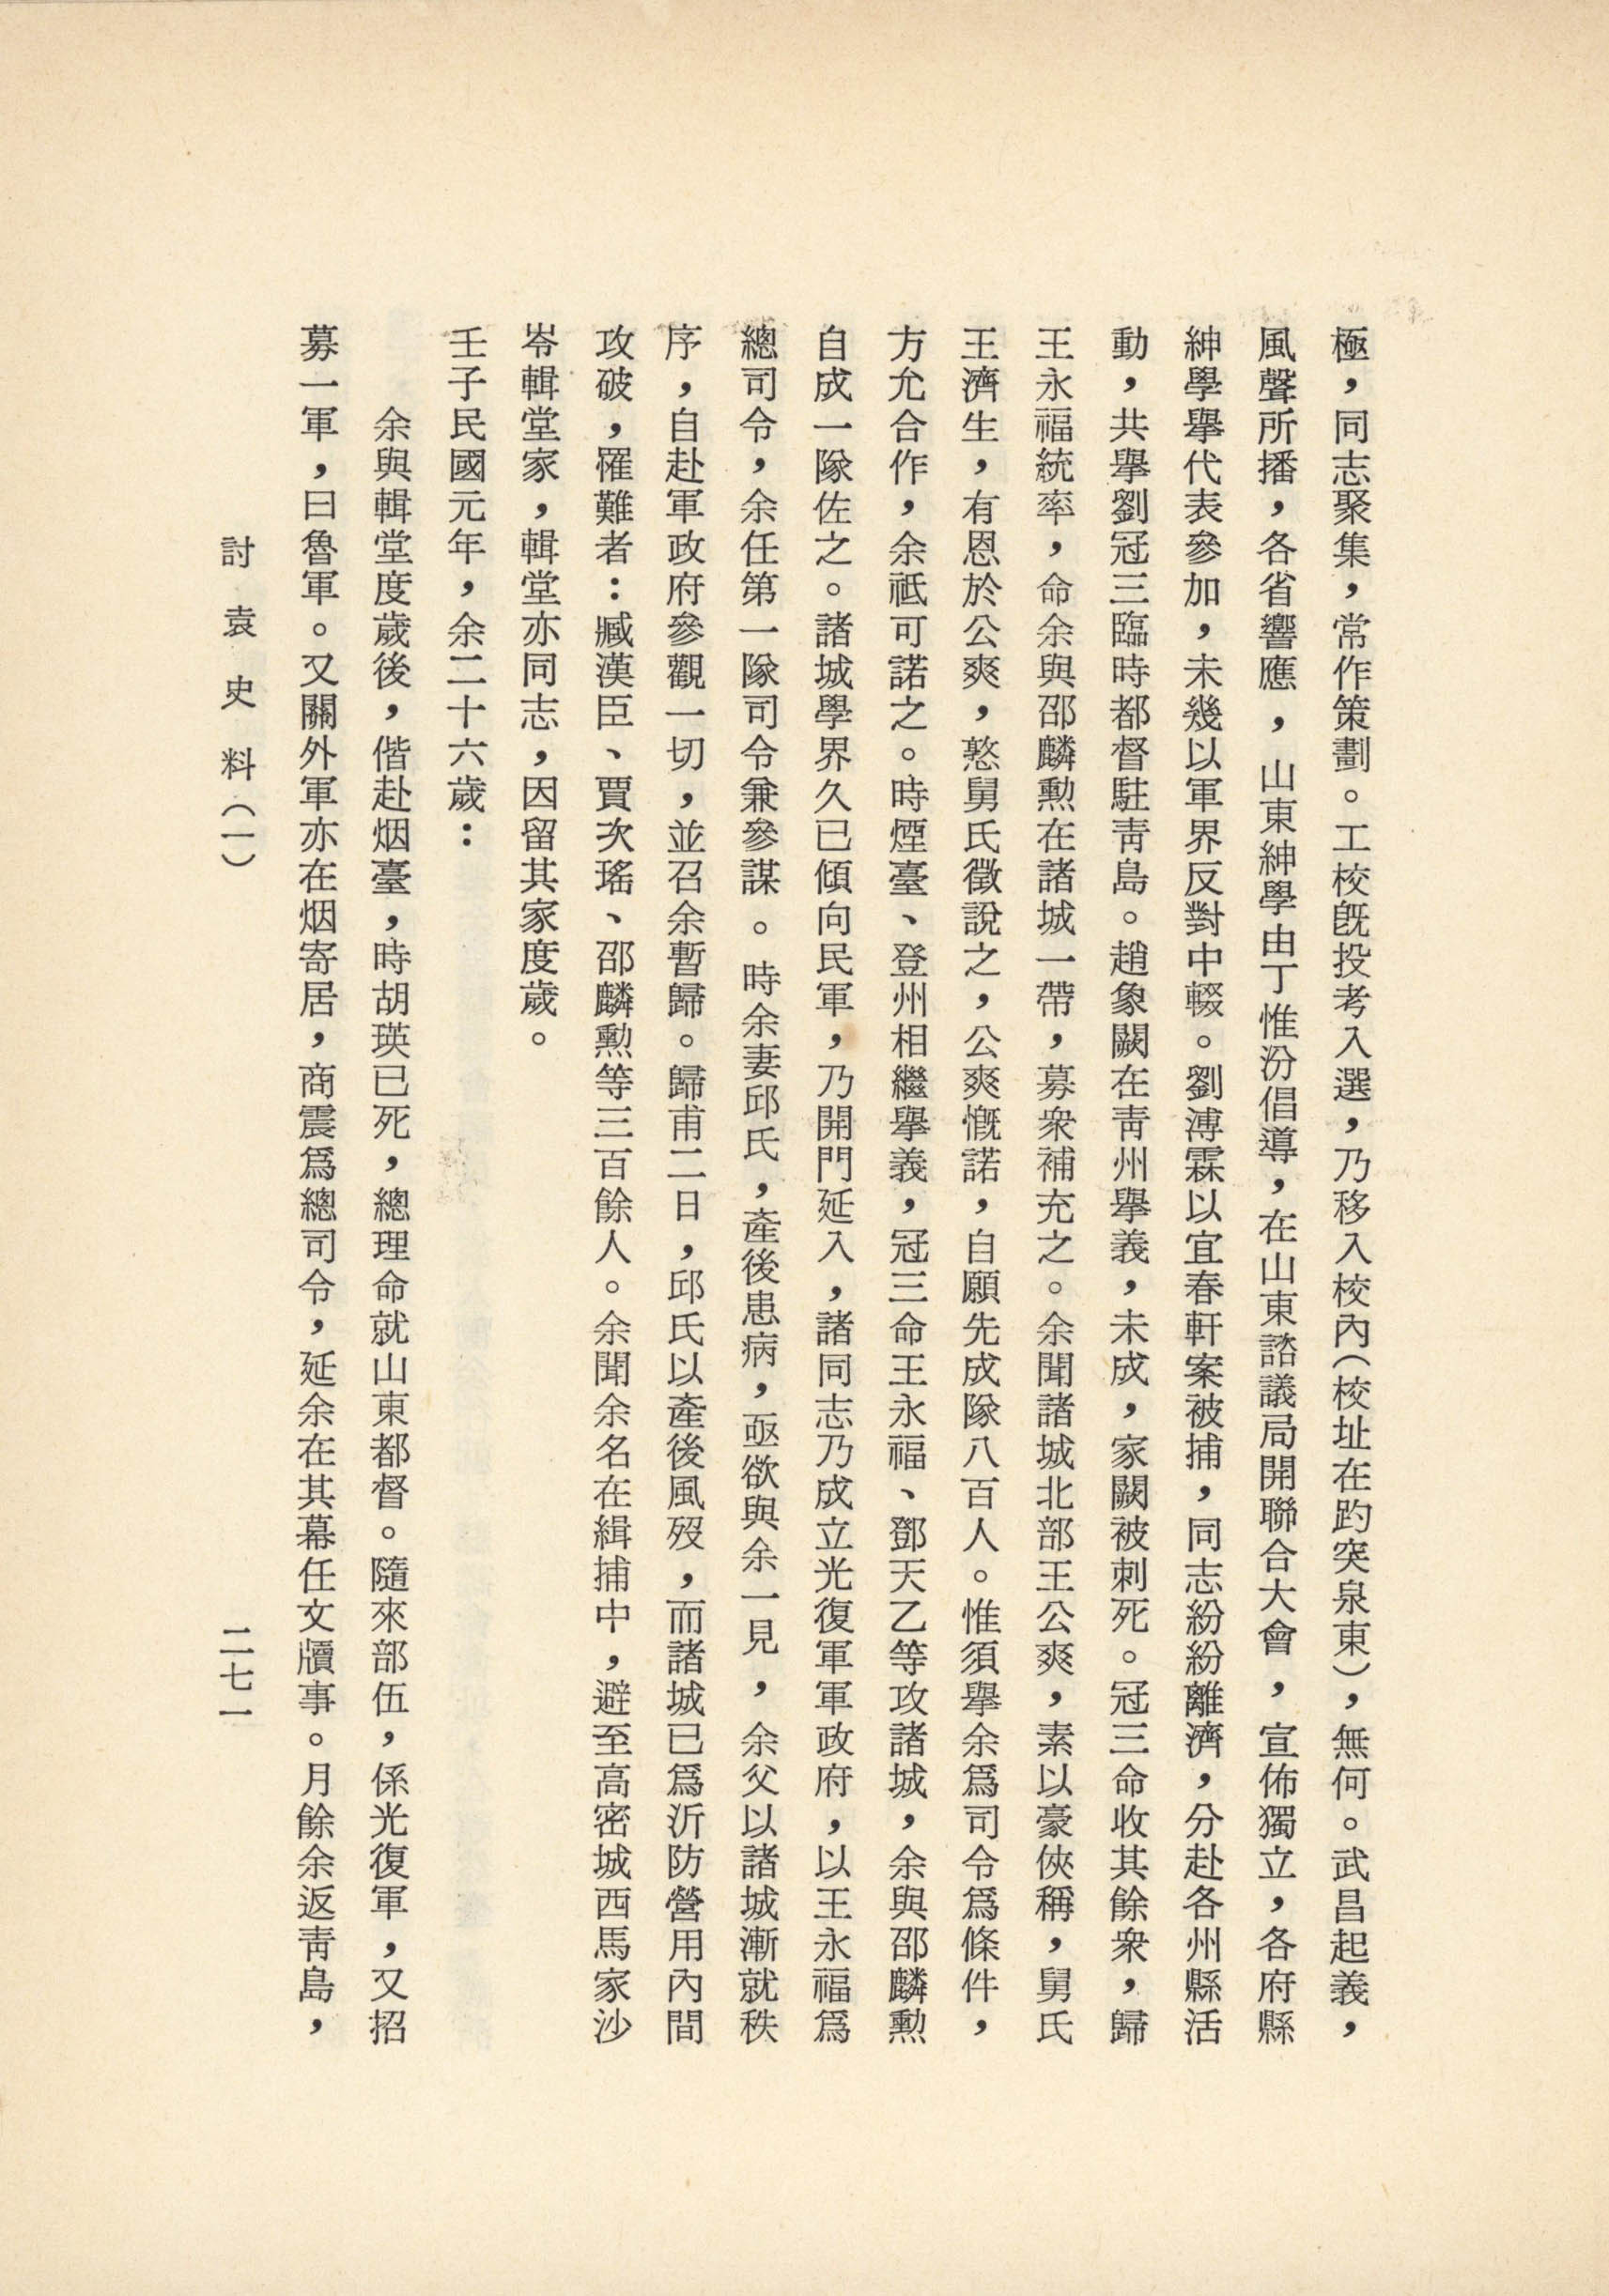 極，同志聚集，常作策劃。工校旣投考入選，乃移入校內（校址在趵突泉東），無何。武昌起義，
風聲所播，各省響應，山東紳學由丁惟汾倡導，在山東諮議局開聯合大會，宣佈獨立，各府縣
紳學舉代表參加，未幾以軍界反對中輟。劉溥霖以宜春軒案被捕，同志紛紛離濟，分赴各州縣活
動，共舉劉冠三臨時都督駐靑島。趙象闕在靑州舉義，未成，家闕被刺死。冠三命收其餘衆，歸
王永福統率，命余與邵麟勳在諸城一帶，募衆補充之。余聞諸城北部王公爽，素以豪俠稱，舅氏
王濟生，有恩於公爽，慫舅氏徵說之，公爽慨諾，自願先成隊八百人。惟須舉余爲司令爲條件，
方允合作，余祗可諾之。時煙臺、登州相繼舉義，冠三命王永福、鄧天乙等攻諸城，余與邵麟勳
自成一隊佐之。諸城學界久已傾向民軍，乃開門延入，諸同志乃成立光復軍軍政府，以王永福爲
總司令，余任第一隊司令兼參謀。時余妻邱氏，產後患病，亟欲與余一見，余父以諸城漸就秩
序，自赴軍政府參觀一切，並召余暫歸。歸甫二日，邱氏以產後風歿，而諸城已爲沂防營用內間
攻破，罹難者：臧漢臣、賈次瑤、邵麟勳等三百餘人。余聞余名在緝捕中，避至高密城西馬家沙
岺輯堂家，輯堂亦同志，因留其家度歲。
壬子民國元年，余二十六歲：
余與輯堂度歲後，偕赴烟臺，時胡瑛已死，總理命就山東都督。隨來部伍，係光復軍，又招
募一軍，曰魯軍。又關外軍亦在烟寄居，商震爲總司令，延余在其幕任文牘事。月餘余返靑島，
討袁史料（一）
二七一